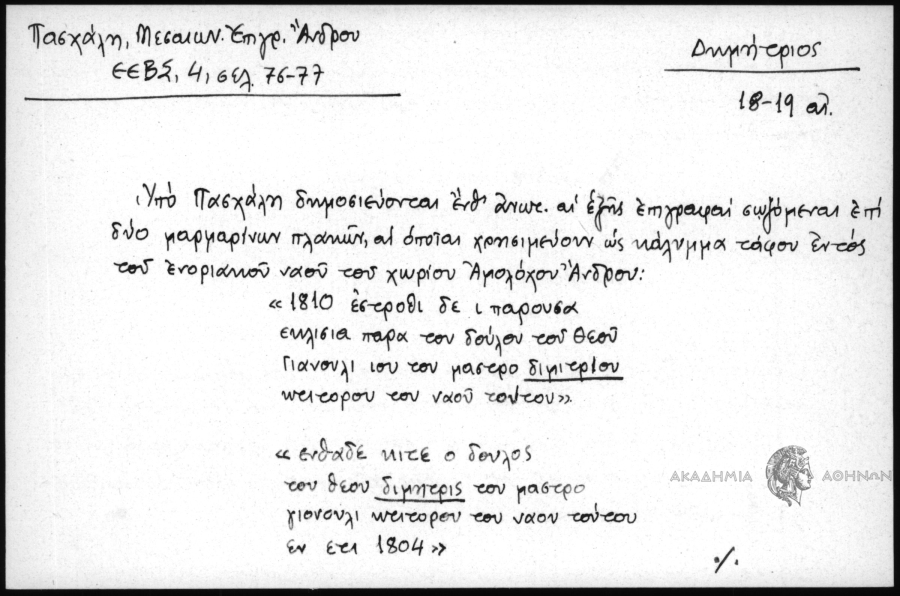 Πασχάλη, Μεσαιων. Ἐπιγρ. Ἄνδρου
ΕΕΒΣ, 4, σελ. 76-77
Δημήτριος
18-19 αἰ.
Ὑπό Πασχάλη δημοσιεύονται ἔνθ' ἀνωτ. αἱ ἑξῆς ἐπιγραφαί σωζόμεναι ἐπί
δύο μαρμαρίνων πλακῶν, αἱ ὁποῖαι χρησιμεύουν ὡς κάλυμμα τάφου ἐντός
τοῦ ἐνοριακοῦ ναοῦ τοῦ χωρίου Ἀμολόχου Ἄνδρου:
« 1810 ἐστροθι δε ι παρουσα
εκλισια παρα τον δούλου τοῦ θεοῦ
Γιανουλι ιου του μαστρο διμιτρίου
κτιτορου του ναοῦ τούτου».
« ενθαδε κιτε ο δουλος
του θεου διμητρις του μαστρο
γιονουλι κτιτορου του ναου τούτου
εν ετι 1804 »
ΑΚΑΔΗΜΙΑ ΑΘΗΝΩΝ
·/.